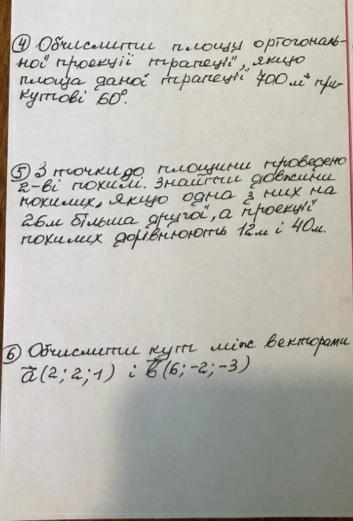 ④ Обчислити площу ортогональ-
ної проекції трапеції, якщо
площа даної трапеції 700м² при
кутові 60°.
⑤ З точки до площини проведено
2-ві похилі. Знайти довжини
похилих, якщо одна з них на
26м більша другої, а проекції
похилих дорівнюють 12м і 40м.
⑥ Обчислити кут між векторами
a⃗(2;2;1) і b⃗(6;-2;-3)